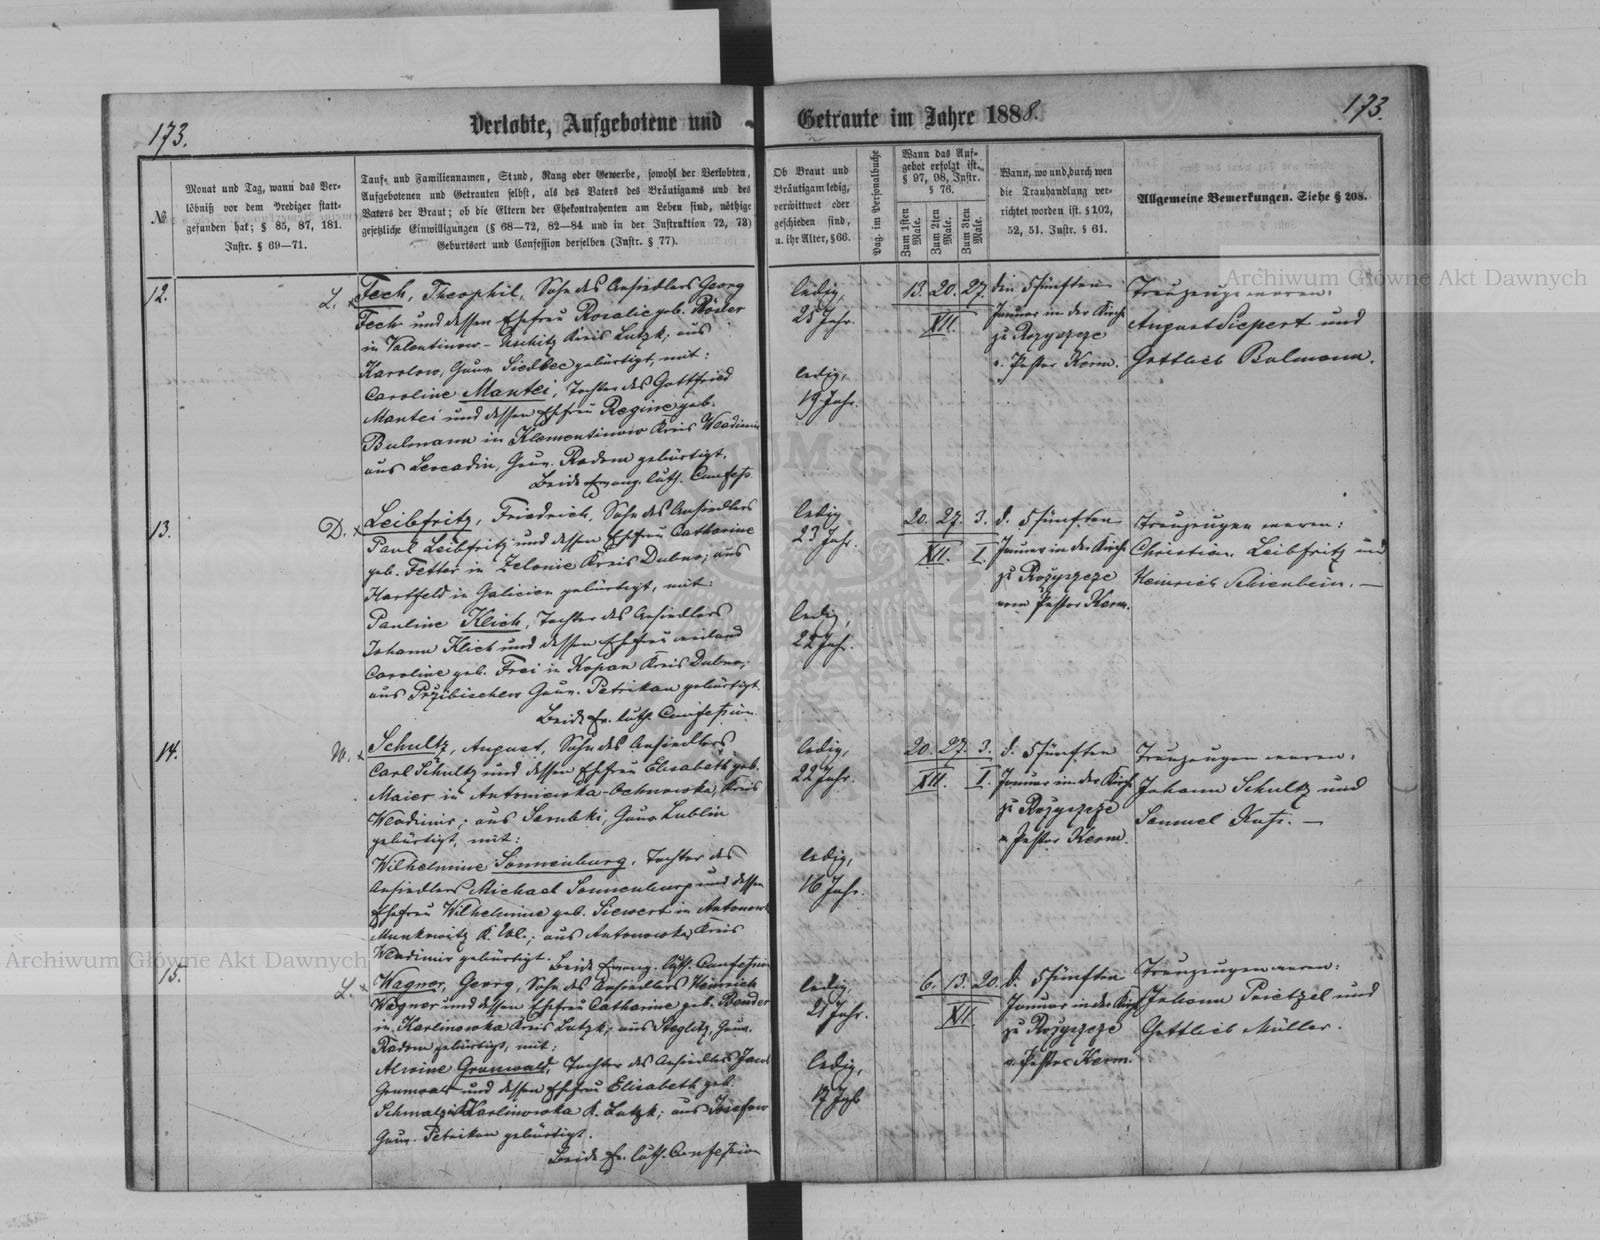 173.
Verlobte, Aufgebotene und
Getraute im Jahre 1888.
173.
№
Monat und Tag, wann das Ver-
löbniß vor dem Prediger statt-
gefunden hat; § 85, 87, 181.
Instr. § 69—71.
Tauf- und Familiennamen, Stand, Rang oder Gewerbe, sowohl der Verlobten,
Aufgebotenen und Getrauten selbst, als des Vaters des Bräutigams und des
Vaters der Braut; ob die Eltern der Ehekontrahenten am Leben sind, nöthige
gesetzliche Einwilligungen (§ 68—72, 82—84 und in der Instruktion 72, 73)
Geburtsort und Confession derselben (Instr. § 77).
Ob Braut und
Bräutigam ledig,
verwittwet oder
geschieden sind,
u. ihr Alter, § 66.
Pag. im Personalbuche
Wann das Auf-
gebot erfolgt ist.
§ 97, 98, Instr.
§ 76.
Zum 1sten Male.
Zum 2ten Male.
Zum 3ten Male.
Wann, wo und durch wen
die Trauhandlung ver-
richtet worden ist. § 102,
52, 51. Instr. § 61.
Allgemeine Bemerkungen. Siehe § 208.
12.
L. x
Fech, Theophil, Sohn des Ansiedlers Georg
Fech und dessen Ehefrau Rosalie geb. Röster
in Valentinow - Kreis Lutzk; aus
Karolow, Gouv. Siedlce gebürtigt, mit:
Caroline Mantei, Tochter des Gottfried
Mantei und dessen Ehefrau Regine geb.
Bulmann in Klementinow Kreis Wladimir
aus Leocadin, Gouv. Radom gebürtigt.
Beide Evang. luth. Confess.
ledig,
25 Jahr.
ledig,
19 Jahr.
13. 20. 27.
XII.
den 5 fünften
Januar in der Kirche
zu Rozyszcze
v. Pastor Kerm.
Trauzeugen waren:
August Siepert und
Gottlieb Bulmann.
13.
D. x
Leibfritz, Friedrich, Sohn des Ansiedlers
Paul Leibfritz und dessen Ehefrau Catharine
geb. Fetter in Zelonie Kreis Dubno; aus
Hartfeld in Galicien gebürtigt, mit:
Pauline Klich, Tochter des Ansiedlers
Johann Klich und dessen Ehefrau weiland
Caroline geb. Frei in Kopan Kreis Dubno;
aus Gouv. Petrikau gebürtigt.
Beide Ev. luth. Confession.
ledig
23 Jahr.
ledig,
22 Jahr.
20. 27. 3.
XII. I.
d. 5 fünften
Januar in der Kirche
zu Rozyszcze
vom Pastor Kerm.
Trauzeugen waren:
Christian Leibfritz und
Heinrich Schienbein. —
14.
W. x
Schultz, August, Sohn des Ansiedlers
Carl Schultz und dessen Ehefrau Elisabeth geb.
Maier in Antoniewka-Ochnowka, Kreis
Wladimir; aus Gouv. Lublin
gebürtigt, mit:
Wilhelmine Sonnenburg, Tochter des
Ansiedlers Michael Sonnenburg und dessen
Ehefrau Wilhelmine geb. Siewert in
K. Wl.; aus Antonowka, Kreis
Wladimir gebürtigt. Beide Evang. luth. Confession
ledig,
22 Jahr.
ledig,
16 Jahr.
20. 27. 3.
XII. I.
d. 5 fünften
Januar in der Kirche
zu Rozyszcze
v. Pastor Kerm.
Trauzeugen waren:
Johann Schultz und
Samuel —
15.
L. x
Wagner, Georg, Sohn des Ansiedlers Heinrich
Wagner und dessen Ehefrau Catharine geb. Bender
in Karlinowka Kreis Lutzk; aus Gouv.
Radom gebürtigt, mit:
Alwine Grunwald, Tochter des Ansiedlers Jacob
Grunwald und dessen Ehefrau Elisabeth geb.
Karlinowka K. Lutzk; aus Josefow
Gouv. Petrikau gebürtigt.
Beide Ev. luth. Confession
ledig,
21 Jahr.
ledig,
17 Jahr
6. 13. 20.
XII
d. 5 fünften
Januar in der Kirche
zu Rozyszcze
v. Pastor Kerm.
Trauzeugen waren:
Johann Prietzel und
Gottlieb Müller.
Archiwum Główne Akt Dawnych
Archiwum Główne Akt Dawnych